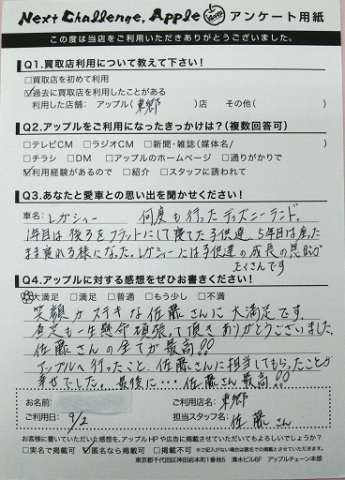 Next Challenge, Apple アンケート用紙
この度は当店をご利用いただきありがとうございました。
Q1.買取店利用について教えて下さい!
□買取店を初めて利用
☑過去に買取店を利用したことがある
利用した店舗: アップル(東郷)店 その他( )
Q2.アップルをご利用になったきっかけは?(複数回答可)
□テレビCM □ラジオCM □新聞・雑誌(媒体名/ )
□チラシ □DM □アップルのホームページ □通りがかりで
☑利用経験があるので □紹介 □スタッフに誘われて
Q3.あなたと愛車との思い出を聞かせください!
車名: レガシィー 何度も行ったディズニーランド。
1年目は後ろをフラットにして寝てた子供達 5年目は座った
まま寝れる様になった。レガシィーには子供達の成長の思い出が
たくさんです
Q4.アップルに対する感想をぜひお書きください!
☑大満足 □満足 □普通 □もう少し □不満
笑顔がステキな佐藤さんに大満足です。
査定も一生懸命頑張って頂きありがとうございました。
佐藤さんの全てが最高!!
アップルへ行ったこと、佐藤さんに担当してもらったことが
幸せでした。最後に・・・佐藤さん最高!!
お名前:
ご利用店名: 東郷
ご利用日: 9/2
担当スタッフ名: 佐藤さん
お客様に書いていただいた感想を、アップルHPや広告に掲載させていただいてもよろしいでしょうか?
□実名で掲載可 ☑匿名なら掲載可 □不可
※ご記入がない場合は匿名での掲載とさせていただきます。
東京都千代田区神田岩本町1番地5 清水ビル6F アップルチェーン本部